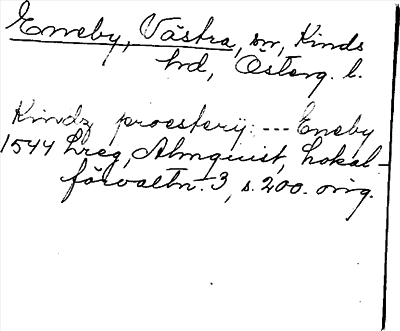 Eneby, Västra, sn, Kinds
hd, Österg. l.
Kindz proesterij --- Eneby
1544 Lreg, Almquist, Lokal-
förvaltn. 3, s. 200. orig.